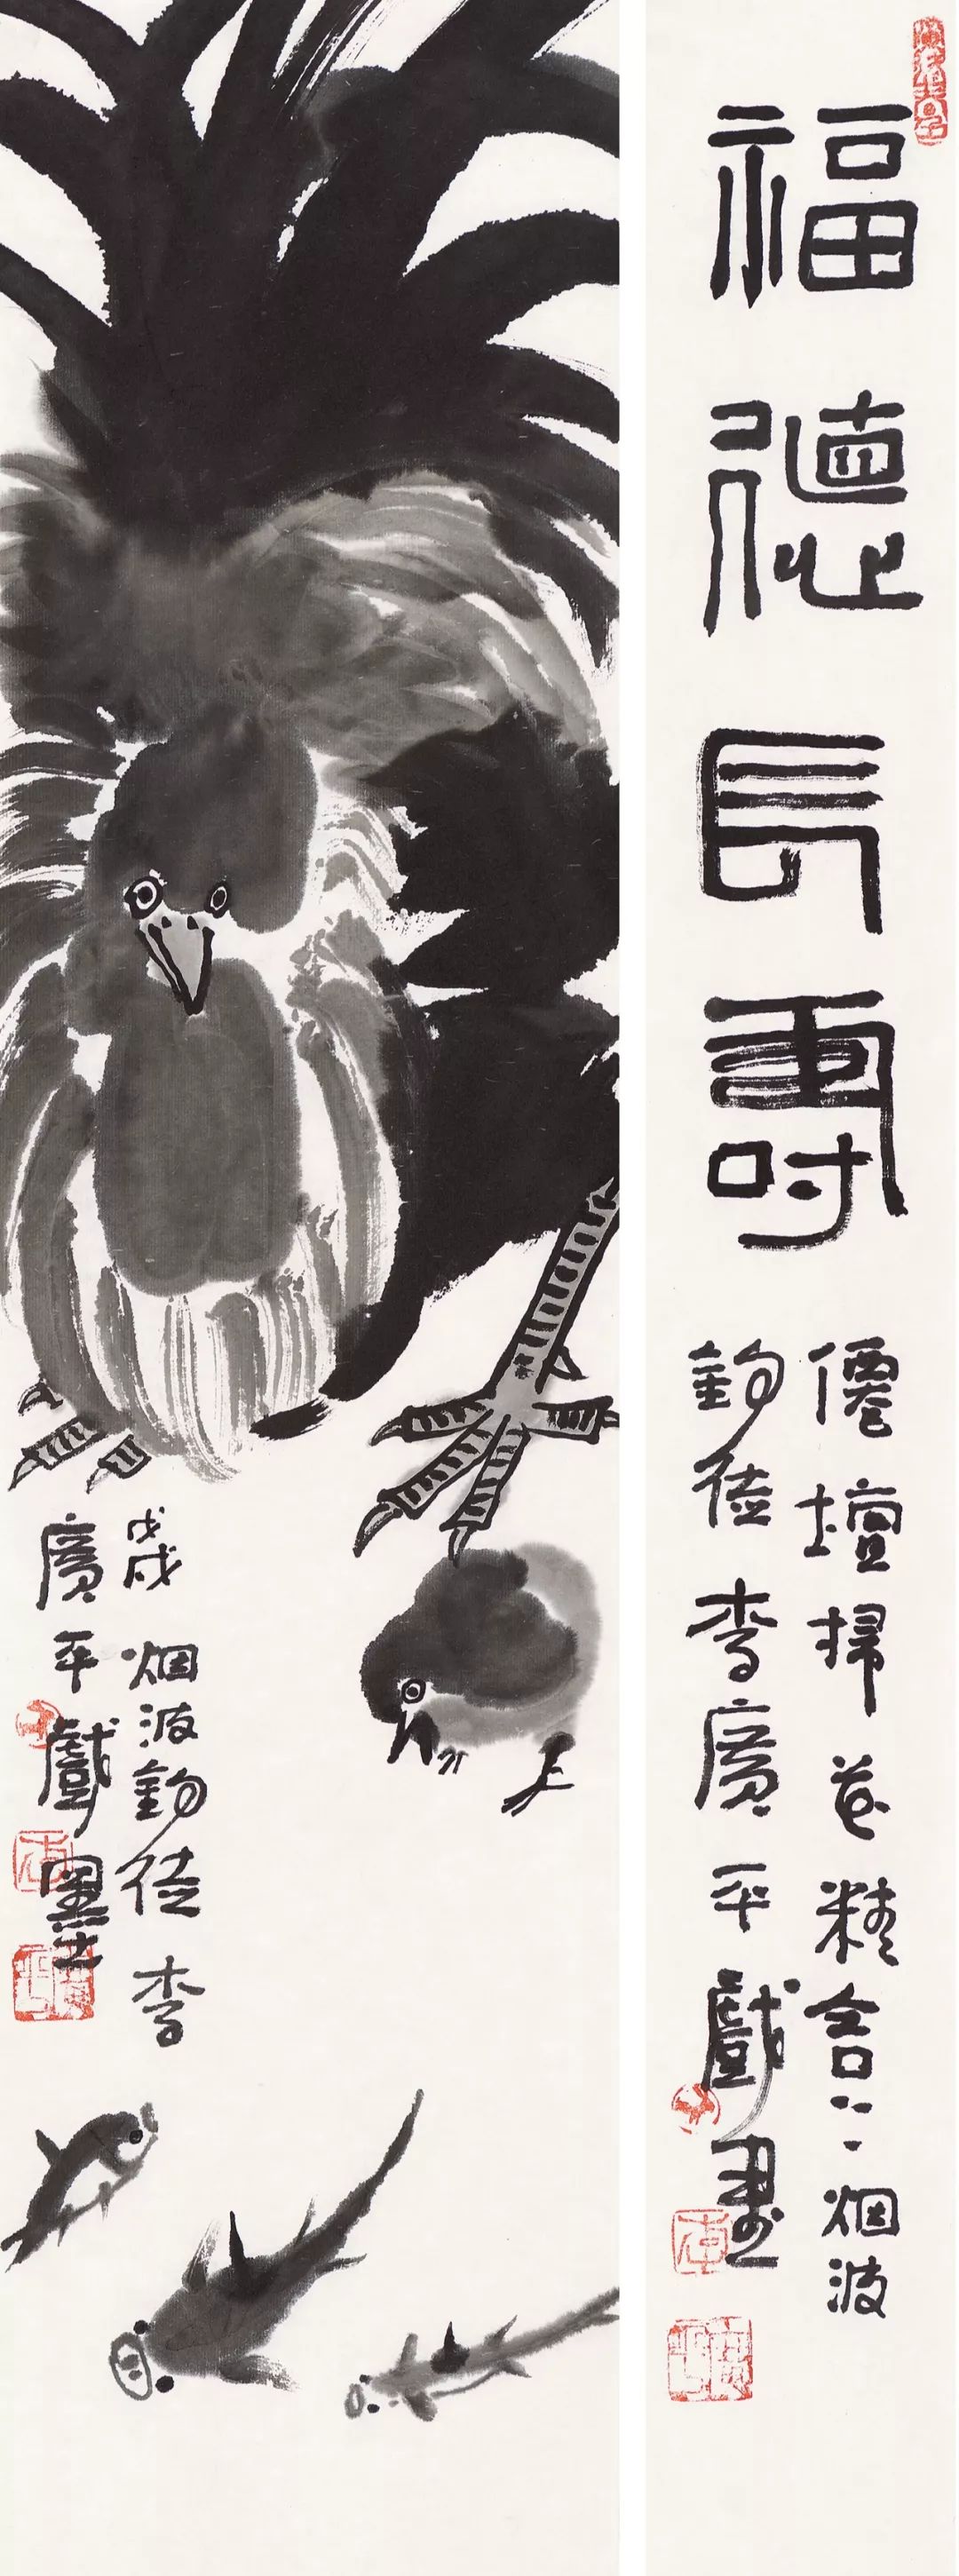 福德長壽
僊壇掃花精舍 烟波
釣徒李廣平戲畫
戊戌 烟波釣徒 李
廣平戲墨